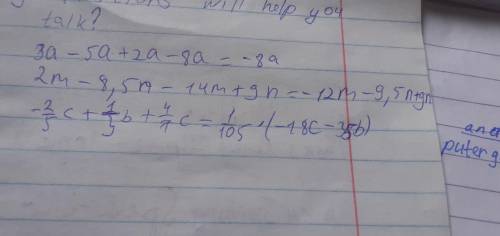 will help you
talk?
3a - 5a + 2a - 8a = -8a
2m - 8,5n - 14m + 9n = -12m - 9,5n + 9n
-2/5 c + 1/3 b + 4/7 c = 1/105 · (-18c - 35b)